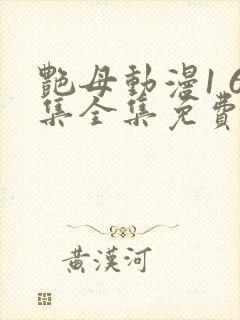 艷母動漫1 6
集全集免費
黃漢河